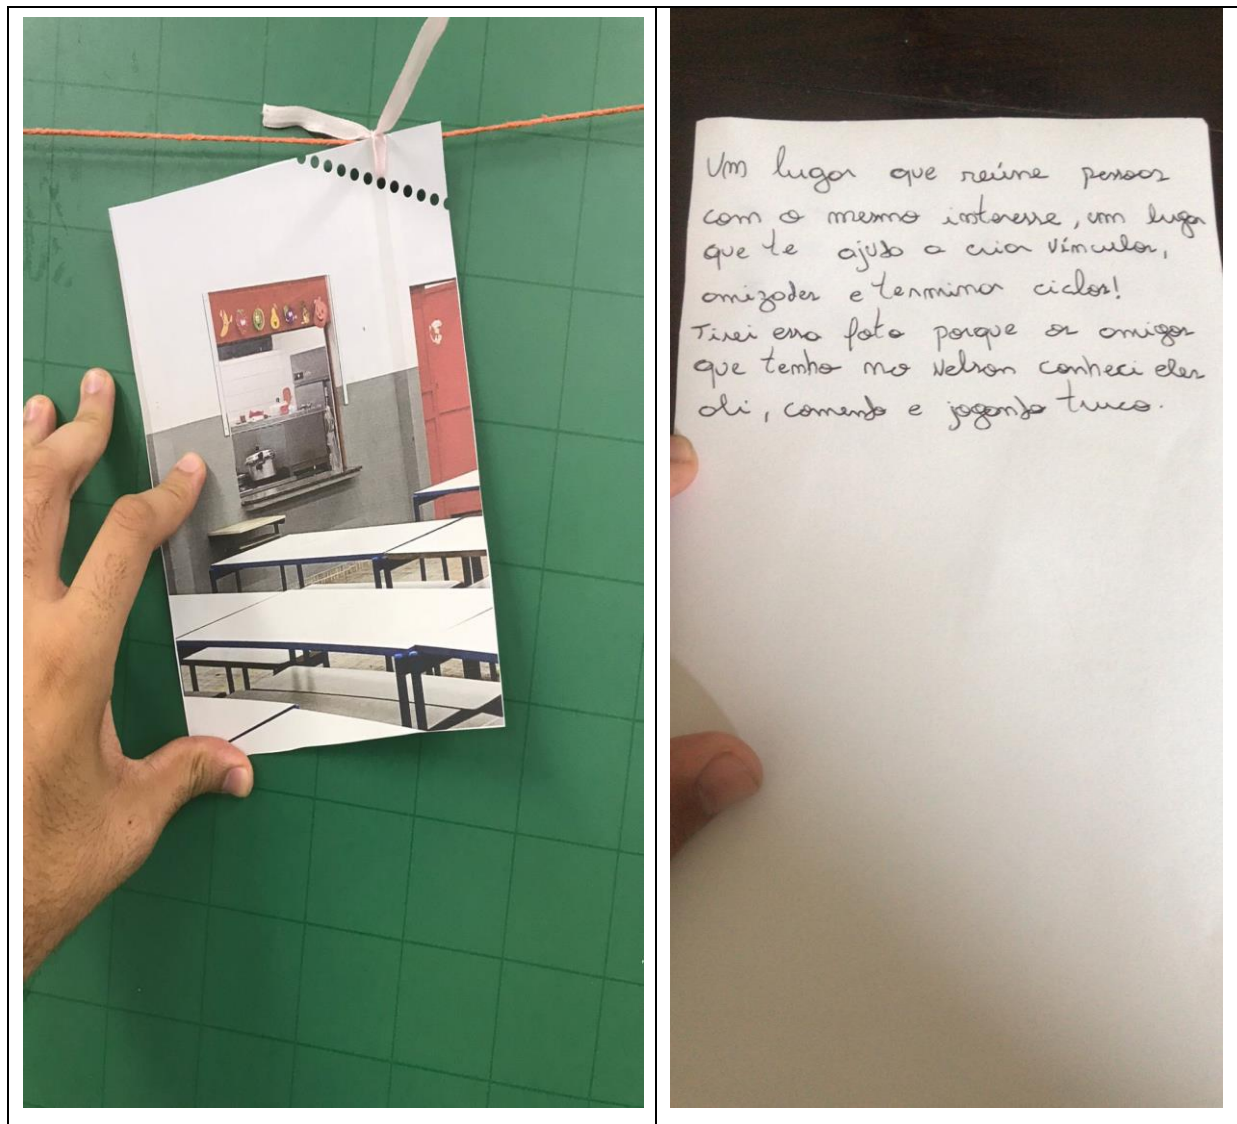 Um lugar que reúne pessoas
com o mesmo interesse, um lugar
que te ajuda a criar vínculos,
amizades e terminar ciclos!
Tirei essa foto porque os amigos
que tenho no Nelson conheci eles
ali, comendo e jogando truco.